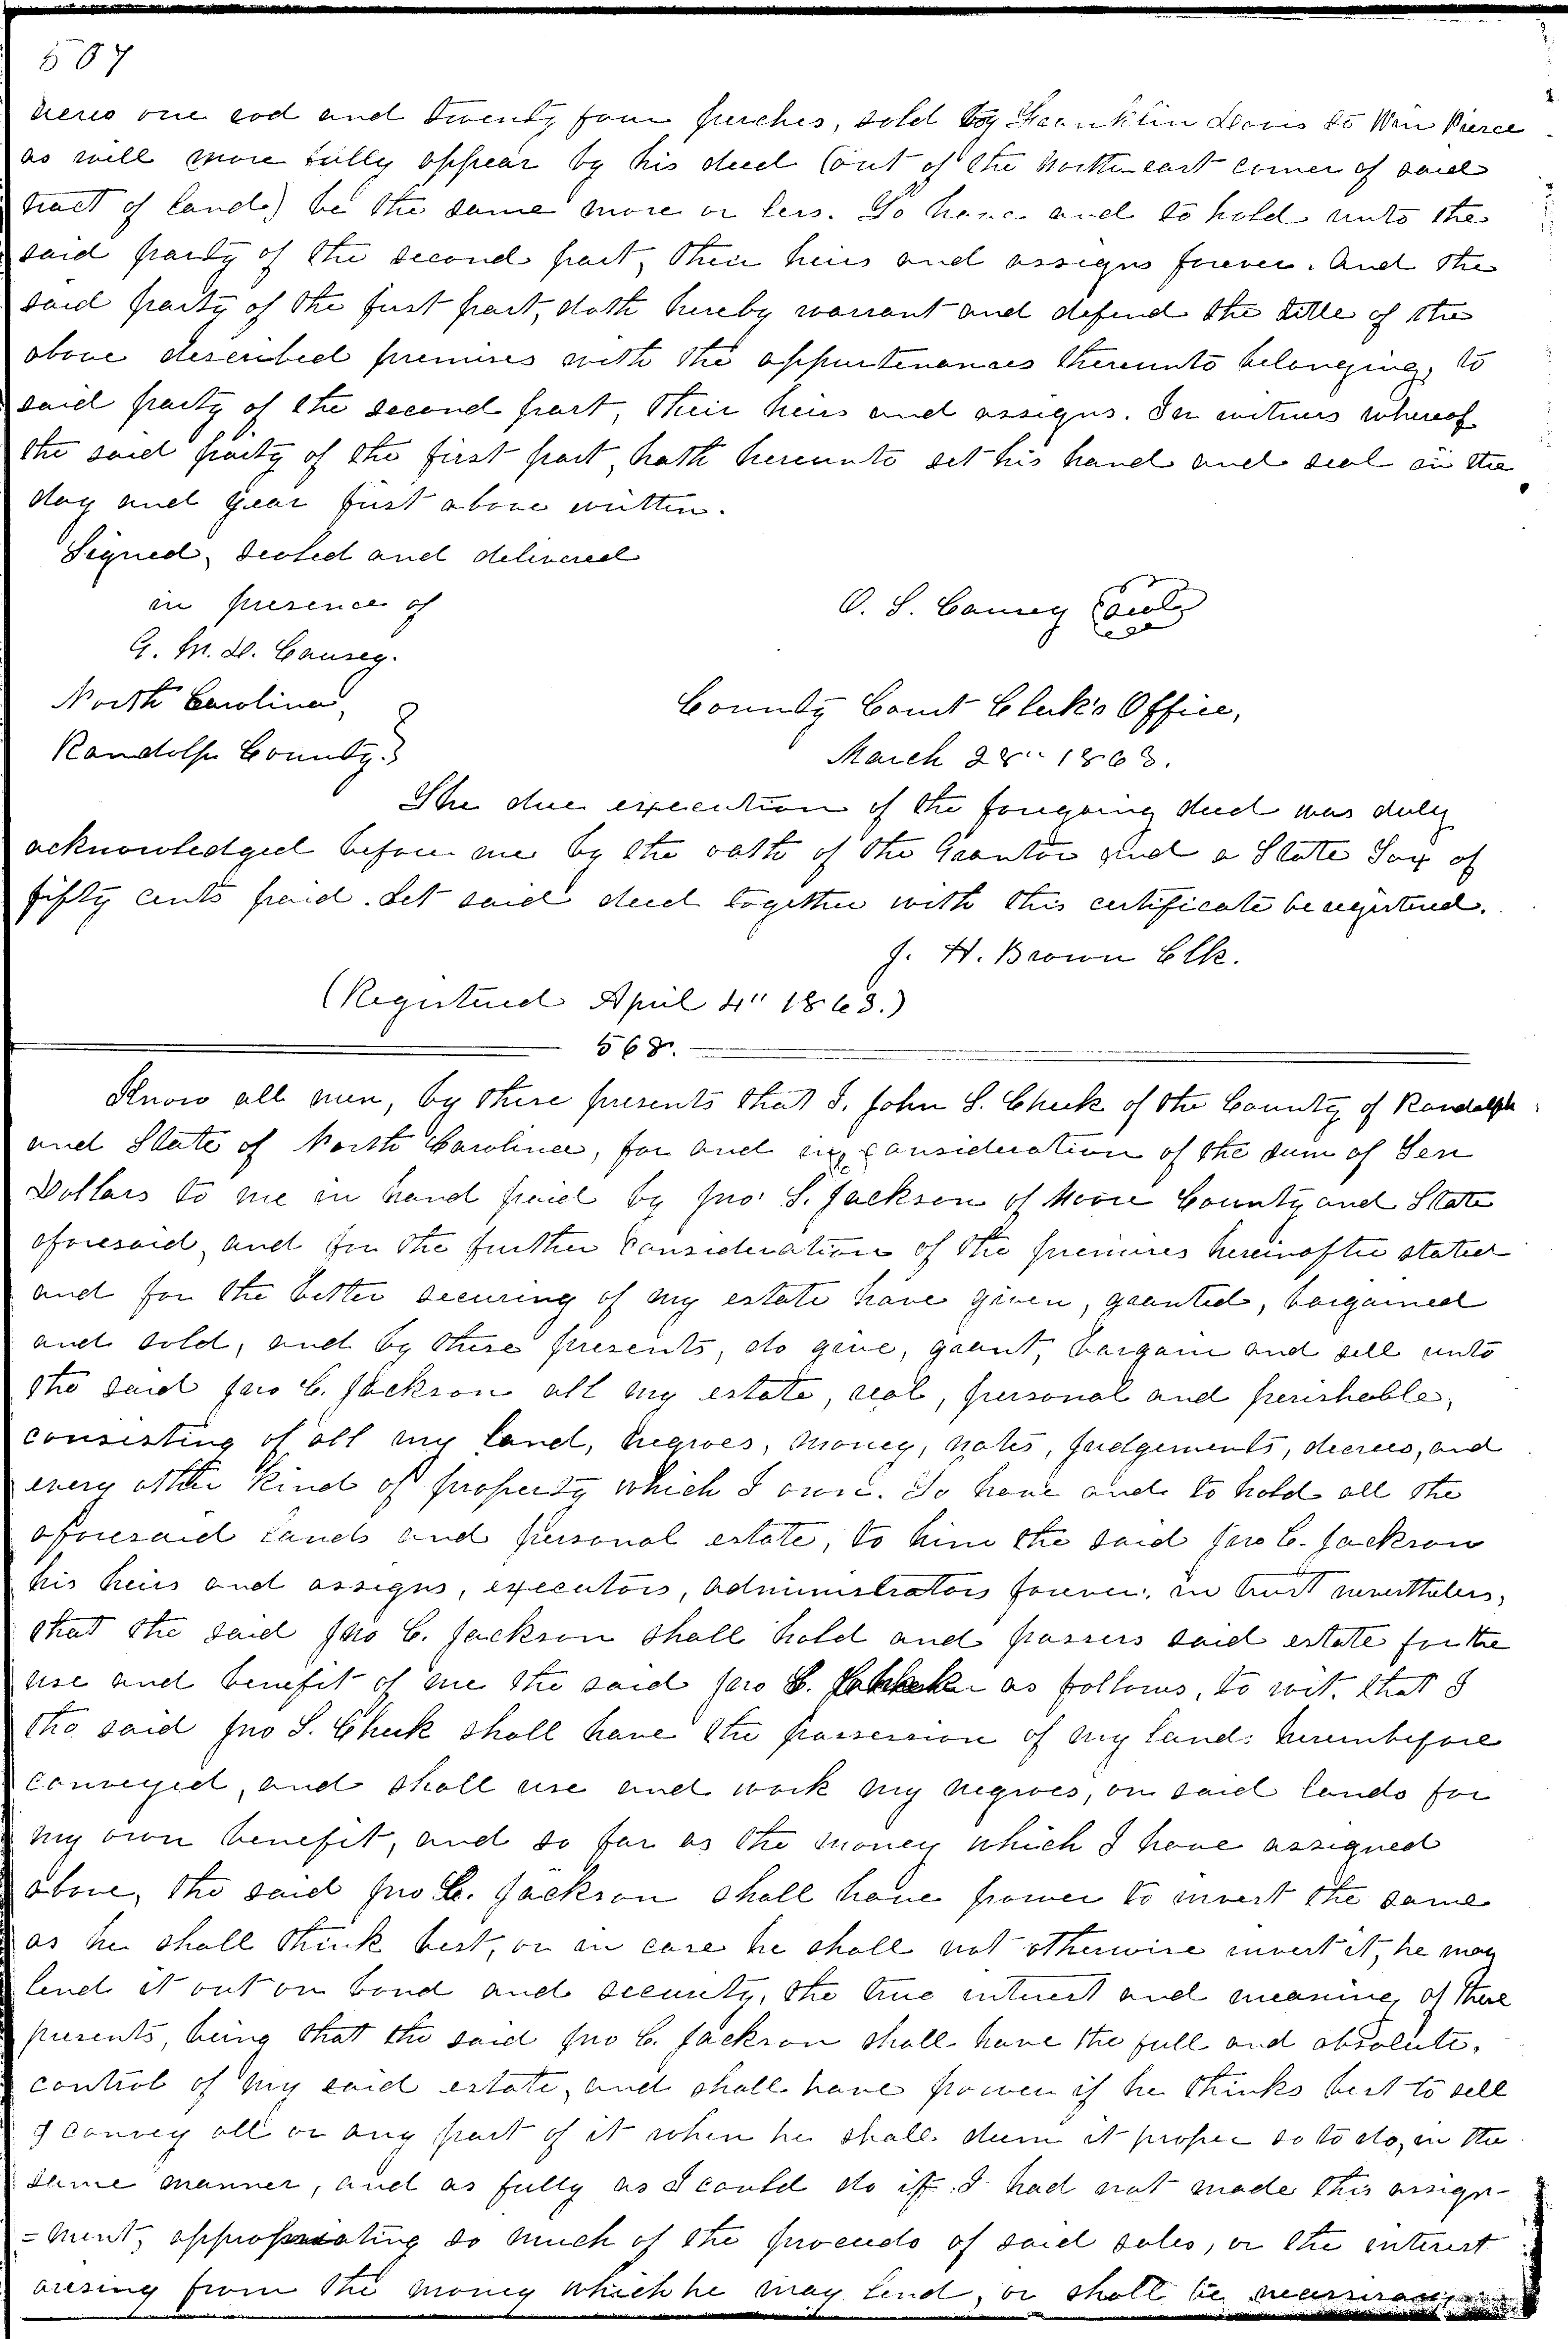 567
acres one rod and twenty four perches, sold by Franklin Davis to Wm Pierce
as will more fully appear by his deed (out of the North-east corner of said
tract of land) be the same more or less. To have and to hold unto the
said party of the second part, their heirs and assigns forever. And the
said party of the first part, doth hereby warrant and defend the title of the
above described premises with the appurtenances thereunto belonging, to
said party of the second part, their heirs and assigns. In witness whereof
the said party of the first part, hath hereunto set his hand and seal in the
day and year first above written.
Signed, sealed and delivered
in presence of
O. S. Causey (seal)
G. M. D. Causey.
North Carolina,
County Court Clerk's Office,
Randolph County.
March 28" 1863.
The due execution of the foregoing deed was duly
acknowledged before me by the oath of the Grantor and a State Tax of
fifty cents paid. Let said deed together with this certificate be registered.
J. H. Brown Clk.
(Registered April 4" 1863.)
568.
Know all men, by these presents that I, John S. Cheek of the County of Randolph
and State of North Carolina, for and in consideration of the sum of Ten
Dollars to me in hand paid by Jno. S. Jackson of Moore County and State
aforesaid, and for the further consideration of the premises hereinafter stated
and for the better securing of my estate have given, granted, bargained
and sold, and by these presents, do give, grant, bargain and sell unto
the said Jno C. Jackson all my estate, real, personal and perishable,
consisting of all my land, negroes, money, notes, judgements, decrees, and
every other kind of property which I own. To have and to hold all the
aforesaid lands and personal estate, to him the said Jno C. Jackson
his heirs and assigns, executors, administrators forever, in trust nevertheless,
that the said Jno C. Jackson shall hold and possess said estate for the
use and benefit of me the said Jno as follows, to wit. that I
the said Jno S. Cheek shall have the possession of my lands hereinbefore
conveyed, and shall use and work my negroes, on said lands for
my own benefit, and so far as the money which I have assigned
above, the said Jno C. Jackson shall have power to invest the same
as he shall think best, or in case he shall not otherwise invest it, he may
lend it out on bond and security, the true interest and meaning of these
presents, being that the said Jno C. Jackson shall have the full and absolute,
control of my said estate, and shall have power if he thinks best to sell
& convey all or any part of it when he shall deem it proper so to do, in the
same manner, and as fully as I could do if I had not made this assign-
-ment, appropriating so much of the proceeds of said sales, or the interest
arising from the money which he may lend, or shall be necessary